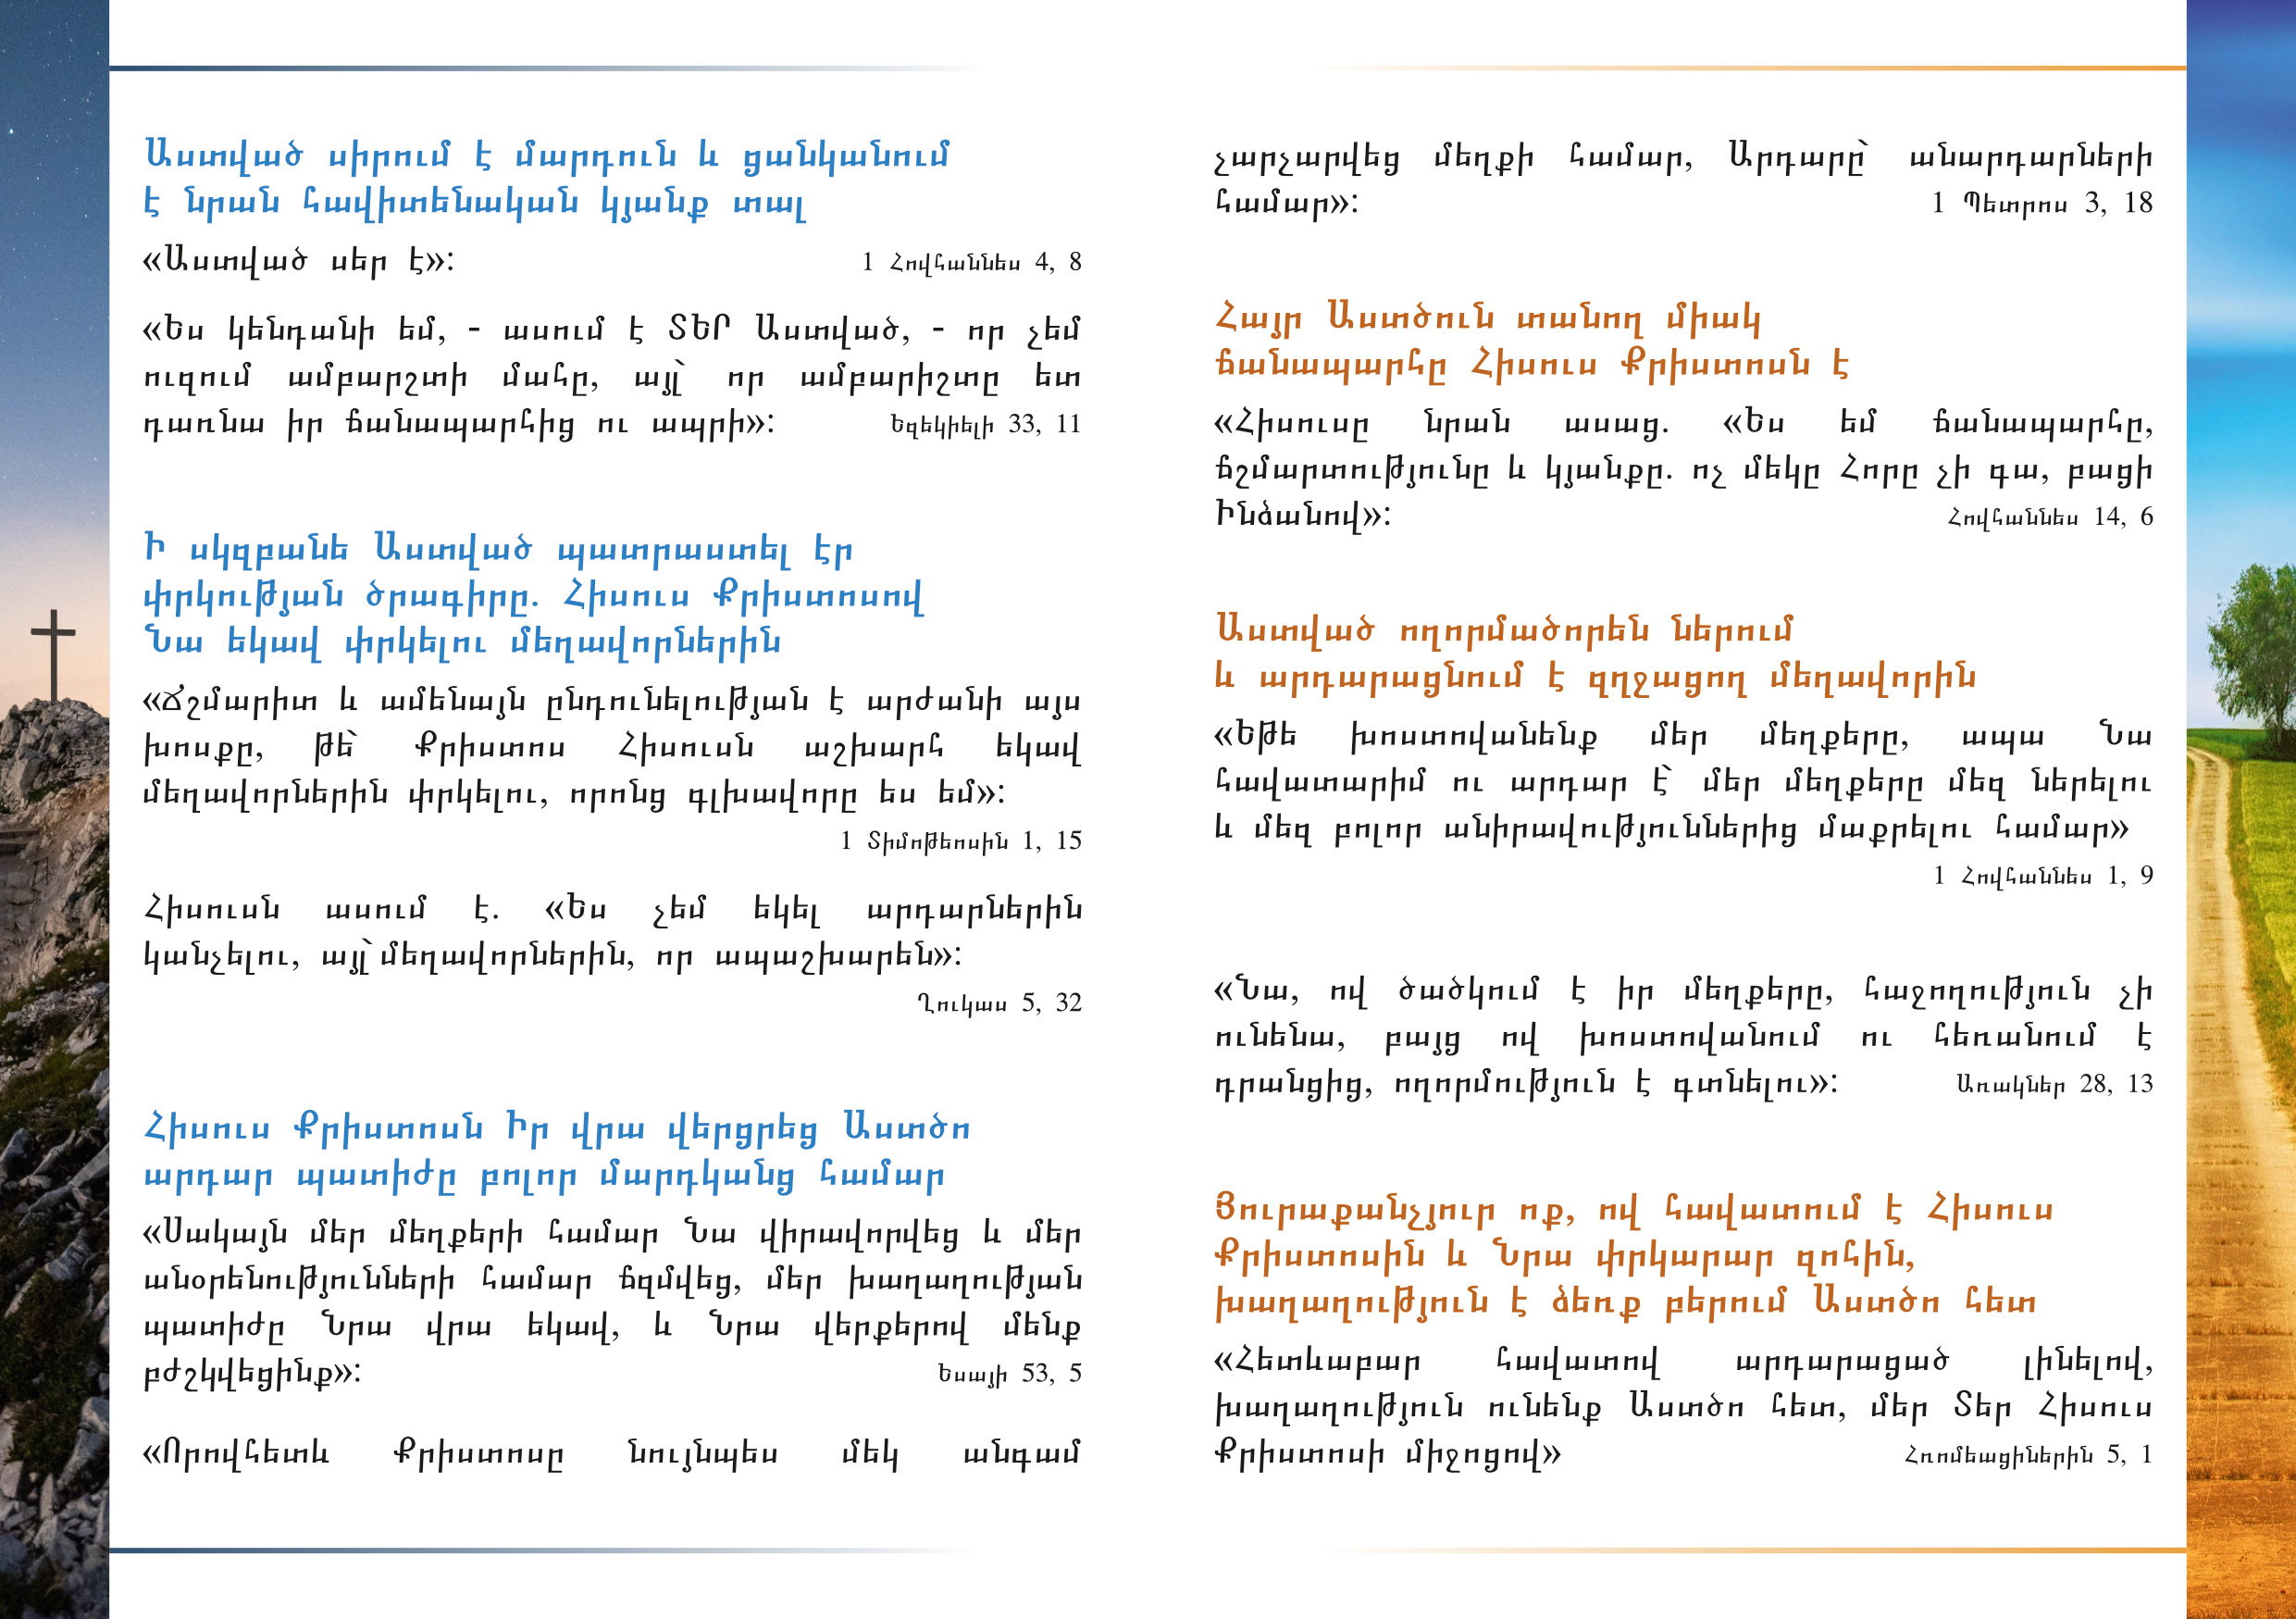 Աստված սիրում է մարդուն և ցանկանում
է նրան հավիտենական կյանք տալ
«Աստված սեր է»: 1 Հովհաննես 4, 8
«Ես կենդանի եմ, - ասում է ՏԵՐ Աստված, - որ չեմ
ուզում ամբարշտի մահը, այլ՝ որ ամբարիշտը ետ
դառնա իր ճանապարհից ու ապրի»: Եզեկիելի 33, 11
Ի սկզբանե Աստված պատրաստել էր
փրկության ծրագիրը. Հիսուս Քրիստոսով
Նա եկավ փրկելու մեղավորներին
«Ճշմարիտ և ամենայն ընդունելության է արժանի այս
խոսքը, թե՝ Քրիստոս Հիսուսն աշխարհ եկավ
մեղավորներին փրկելու, որոնց գլխավորը ես եմ»:
1 Տիմոթեոսին 1, 15
Հիսուսն ասում է. «Ես չեմ եկել արդարներին
կանչելու, այլ՝ մեղավորներին, որ ապաշխարեն»:
Ղուկաս 5, 32
Հիսուս Քրիստոսն Իր վրա վերցրեց Աստծո
արդար պատիժը բոլոր մարդկանց համար
«Սակայն մեր մեղքերի համար Նա վիրավորվեց և մեր
անօրենությունների համար ճզմվեց, մեր խաղաղության
պատիժը Նրա վրա եկավ, և Նրա վերքերով մենք
բժշկվեցինք»: Եսայի 53, 5
«Որովհետև Քրիստոսը նույնպես մեկ անգամ
չարչարվեց մեղքի համար, Արդարը՝ անարդարների
համար»: 1 Պետրոս 3, 18
Հայր Աստծուն տանող միակ
ճանապարհը Հիսուս Քրիստոսն է
«Հիսուսը նրան ասաց. «Ես եմ ճանապարհը,
ճշմարտությունը և կյանքը. ոչ մեկը Հորը չի գա, բացի
Ինձանով»: Հովհաննես 14, 6
Աստված ողորմածորեն ներում
և արդարացնում է զղջացող մեղավորին
«Եթե խոստովանենք մեր մեղքերը, ապա Նա
հավատարիմ ու արդար է՝ մեր մեղքերը մեզ ներելու
և մեզ բոլոր անիրավություններից մաքրելու համար»
1 Հովհաննես 1, 9
«Նա, ով ծածկում է իր մեղքերը, հաջողություն չի
ունենա, բայց ով խոստովանում ու հեռանում է
դրանցից, ողորմություն է գտնելու»: Առակներ 28, 13
Յուրաքանչյուր ոք, ով հավատում է Հիսուս
Քրիստոսին և Նրա փրկարար զոհին,
խաղաղություն է ձեռք բերում Աստծո հետ
«Հետևաբար հավատով արդարացած լինելով,
խաղաղություն ունենք Աստծո հետ, մեր Տեր Հիսուս
Քրիստոսի միջոցով» Հռոմեացիներին 5, 1